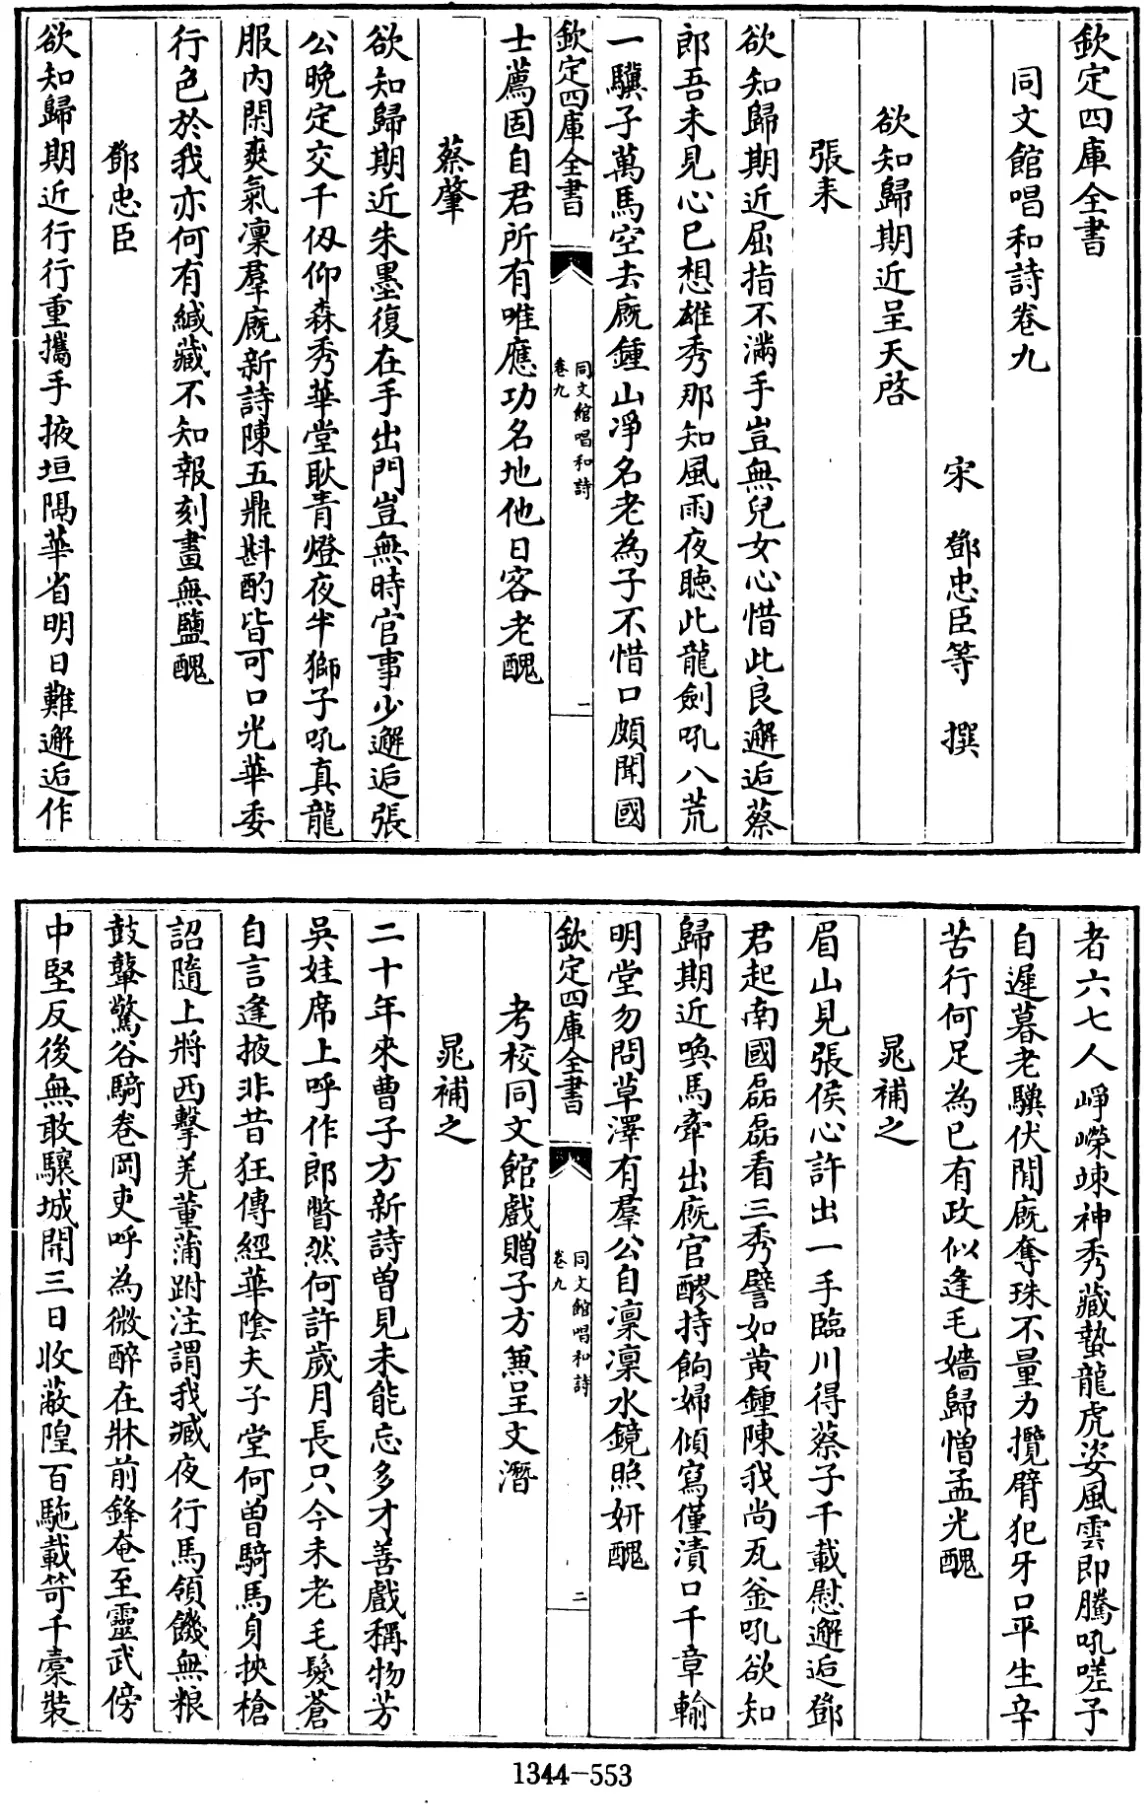 欽定四庫全書
同文館唱和詩卷九
宋 鄧忠臣等 撰
欲知歸期近呈天啓
張耒
欲知歸期近屈指不滿手豈無兒女心惜此良邂逅蔡
郎吾未見心已想雄秀那知風雨夜聽此龍劍吼八荒
一驥子萬馬空去廐鍾山淨名老為子不惜口頗聞國
欽定四庫全書
同文館唱和詩
卷九
一
士薦固自君所有唯應功名地他日容老醜
蔡肇
欲知歸期近朱墨復在手出門豈無時官事少邂逅張
公晚定交千仭仰森秀華堂耿青燈夜半獅子吼真龍
服内閑爽氣凜羣廐新詩陳五鼎斟酌皆可口光華委
行色於我亦何有緘藏不知報刻畫無鹽醜
鄧忠臣
欲知歸期近行行重攜手掖垣隔華省明日難邂逅作
者六七人崢嶸竦神秀藏蟄龍虎姿風雲即騰吼嗟予
自遲暮老驥伏閒廐奪珠不量力攬臂犯牙口平生辛
苦行何足為已有政似逢毛嬙歸憎孟光醜
晁補之
眉山見張侯心許出一手臨川得蔡子千載慰邂逅鄧
君起南國磊磊看三秀譬如黄鍾陳我尚瓦釜吼欲知
歸期近喚馬牽出廐官醪持餉婦傾寫僅漬口千章輸
明堂勿問草澤有羣公自凜凜水鏡照妍醜
欽定四庫全書
同文館唱和詩
卷九
二
考校同文館戲贈子方兼呈文潛
晁補之
二十年來曹子方新詩曽見未能忘多才善戲稱物芳
吳娃席上呼作郎瞥然何許歲月長只今未老毛髮蒼
自言逢掖非昔狂傳經華陰夫子堂何曽騎馬身挾槍
詔隨上將西擊羌菫蒲跗注謂我臧夜行馬領饑無粮
鼓鼙驚谷騎卷岡吏呼為微醉在牀前鋒奄至靈武傍
中堅反後無敢驤城開三日收蔽隍百駞載笴千橐裝
1344-553